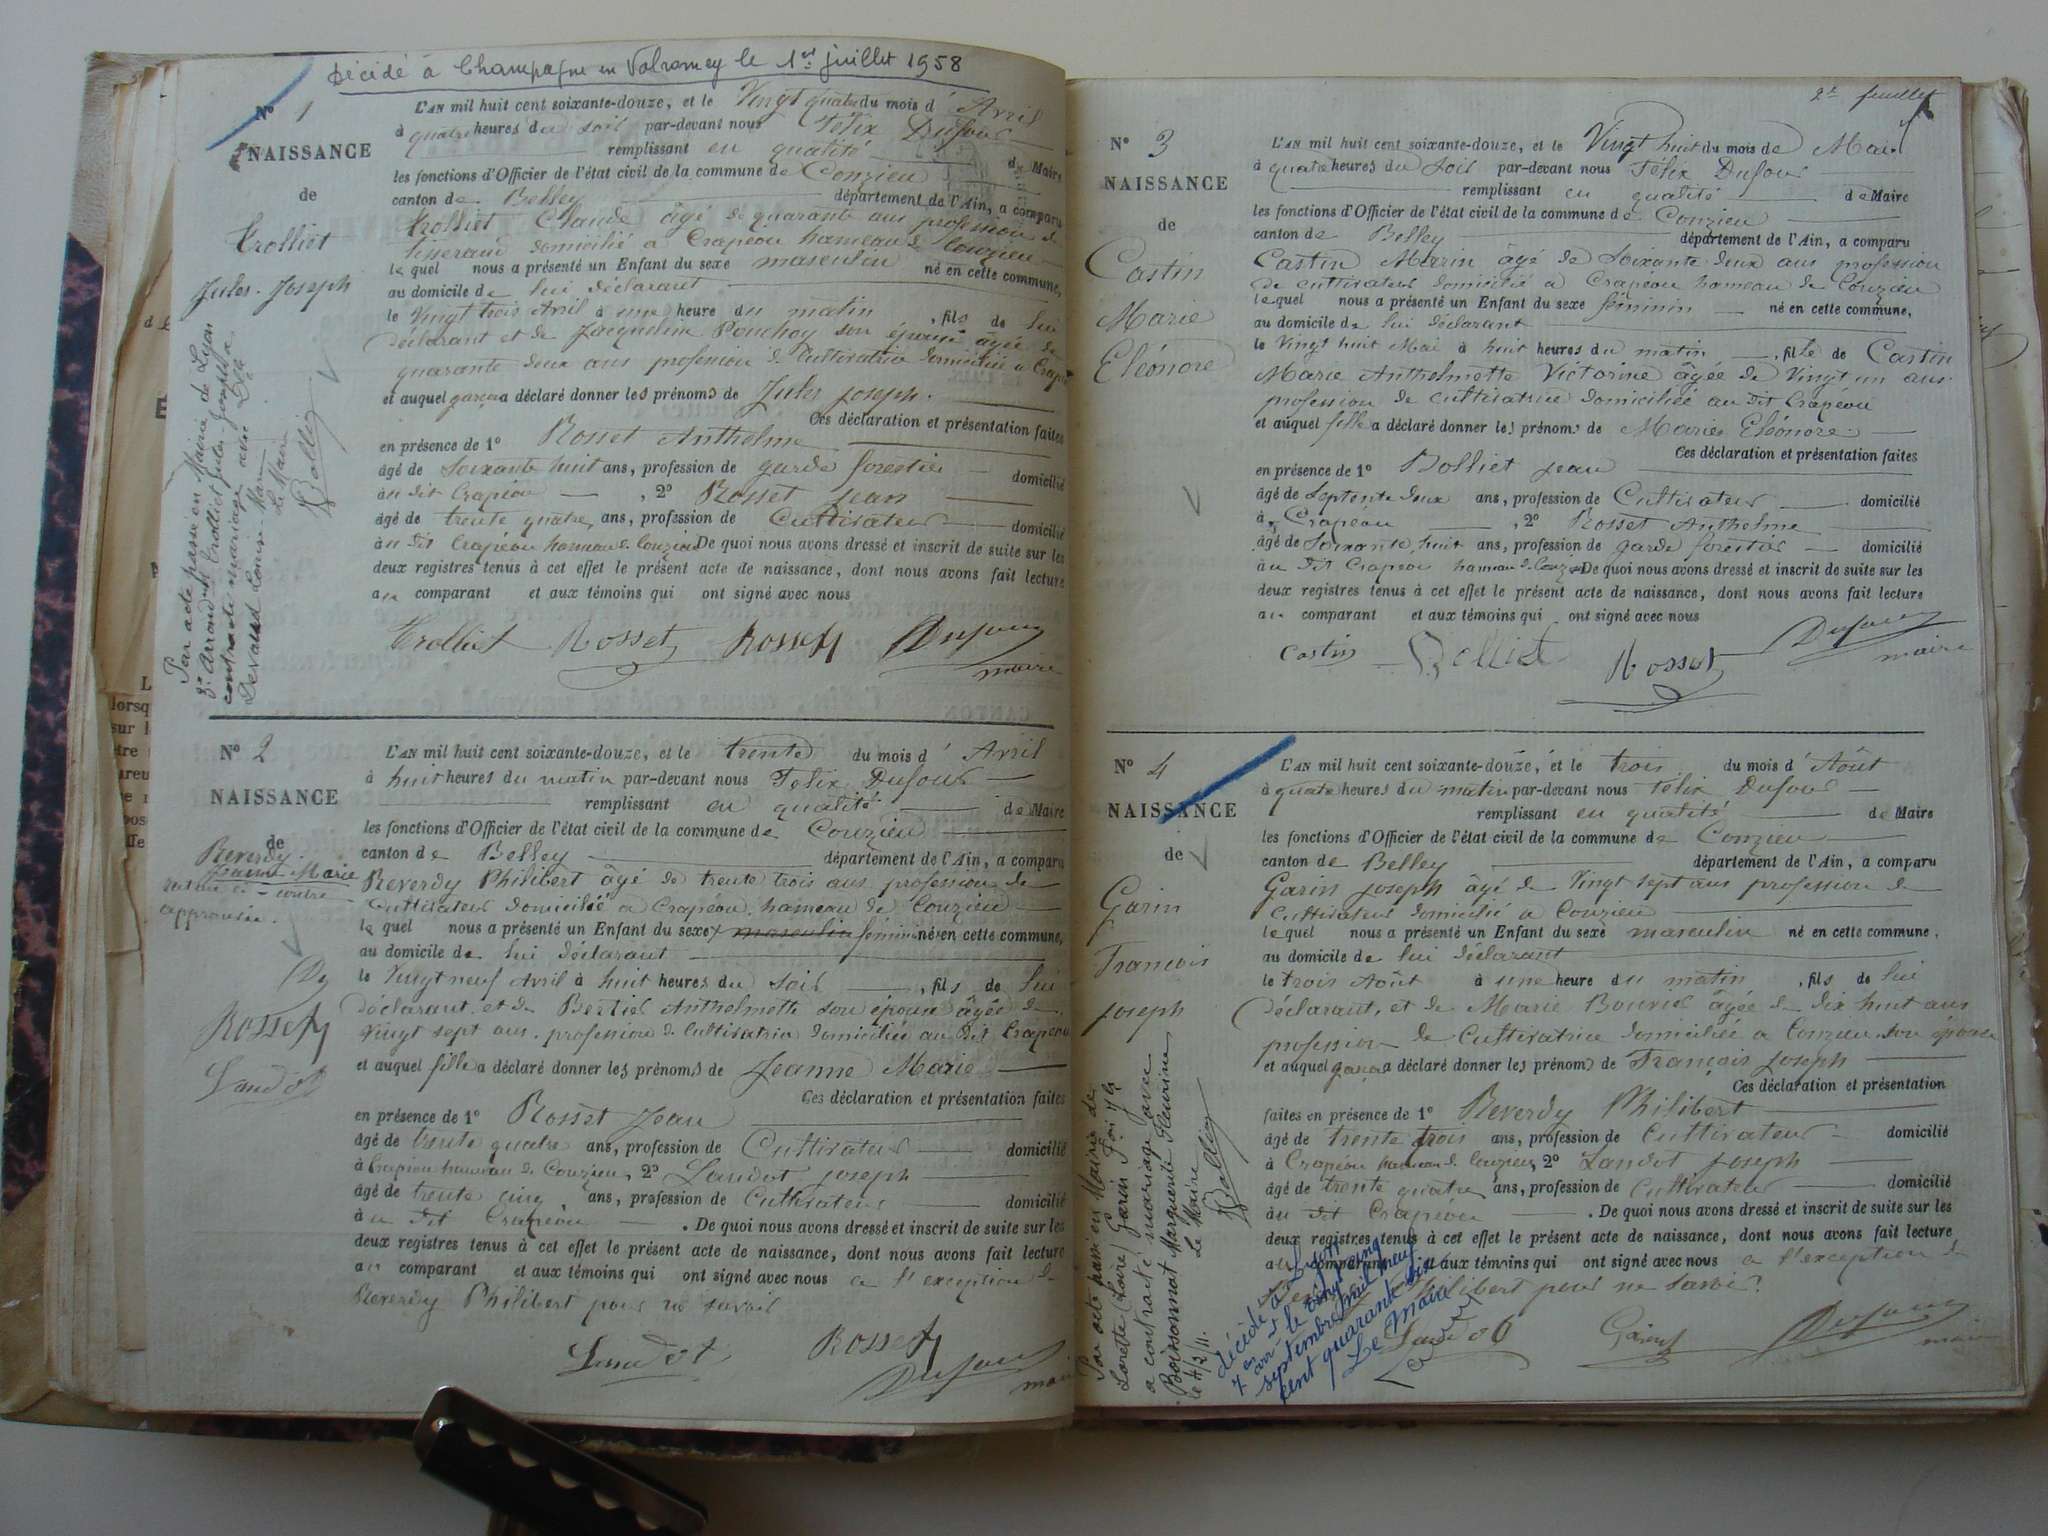 Décédé à Champagne en Valromey le 1er juillet 1958
N° 1
NAISSANCE
de
Trolliet
Jules Joseph
Par acte passé en Mairie de Lyon
3e Arrondt Trolliet Jules Joseph a
contracté mariage avec Dlle
Devaux Louise Marie
Le Maire
L'AN mil huit cent soixante-douze, et le Vingt quatre du mois d'Avril
à quatre heures du soir par-devant nous Félix Dufour
remplissant en qualité de Maire
les fonctions d'Officier de l'état civil de la commune de Conzieu
canton de Belley département de l'Ain, a comparu
Trolliet Claude âgé de quarante ans profession de
tisserand domicilié à Crapéou hameau de Conzieu
lequel nous a présenté un Enfant du sexe masculin né en cette commune,
au domicile de lui déclarant
le Vingt trois Avril à une heure du matin, fils de lui
déclarant et de Jacqueline Ponchoy son épouse âgée de
quarante deux ans profession de Cultivatrice domiciliée à Crapéou
et auquel garçon a déclaré donner les prénoms de Jules Joseph.
Ces déclaration et présentation faites
en présence de 1° Rosset Anthelme
âgé de Soixante huit ans, profession de garde forestier domicilié
au dit Crapéou, 2° Rosset Jean
âgé de trente quatre ans, profession de Cultivateur domicilié
au dit Crapéou hameau de Conzieu De quoi nous avons dressé et inscrit de suite sur les
deux registres tenus à cet effet le présent acte de naissance, dont nous avons fait lecture
au comparant et aux témoins qui ont signé avec nous
Trolliet Rosset Rosset Dufour
maire
N° 2
NAISSANCE
de
Reverdy
Jeanne Marie
rature ci-contre
approuvée.
Rosset
Landot
L'AN mil huit cent soixante-douze, et le trente du mois d'Avril
à huit heures du matin par-devant nous Félix Dufour
remplissant en qualité de Maire
les fonctions d'Officier de l'état civil de la commune de Conzieu
canton de Belley département de l'Ain, a comparu
Reverdy Philibert âgé de trente trois ans profession de
Cultivateur domicilié à Crapéou hameau de Conzieu
lequel nous a présenté un Enfant du sexe masculin féminin né en cette commune,
au domicile de lui déclarant
le Vingt neuf Avril à huit heures du soir, fils de lui
déclarant et de Bertier Anthelmette son épouse âgée de
Vingt sept ans profession de Cultivatrice domiciliée au dit Crapéou
et auquel fille a déclaré donner les prénoms de Jeanne Marie
Ces déclaration et présentation faites
en présence de 1° Rosset Jean
âgé de trente quatre ans, profession de Cultivateur domicilié
à Crapéou hameau de Conzieu, 2° Landot Joseph
âgé de trente cinq ans, profession de Cultivateur domicilié
au dit Crapéou. De quoi nous avons dressé et inscrit de suite sur les
deux registres tenus à cet effet le présent acte de naissance, dont nous avons fait lecture
au comparant et aux témoins qui ont signé avec nous à l'exception de
Reverdy Philibert pour ne savoir
Landot Rosset
Dufour maire
2e feuillet
N° 3
NAISSANCE
de
Castin
Marie
Eléonore
L'AN mil huit cent soixante-douze, et le Vingt huit du mois de Mai
à quatre heures du soir par-devant nous Félix Dufour
remplissant en qualité de Maire
les fonctions d'Officier de l'état civil de la commune de Conzieu
canton de Belley département de l'Ain, a comparu
Castin Marin âgé de Soixante deux ans profession
de cultivateur domicilié à Crapéou hameau de Conzieu
lequel nous a présenté un Enfant du sexe féminin né en cette commune,
au domicile de lui déclarant
le Vingt huit Mai à huit heures du matin, fille de Castin
Marie Anthelmette Victorine âgée de Vingt un ans
profession de cultivatrice domiciliée au dit Crapéou
et auquel fille a déclaré donner les prénoms de Marie Eléonore
Ces déclaration et présentation faites
en présence de 1° Bolliet Jean
âgé de Septente deux ans, profession de Cultivateur domicilié
à Crapéou, 2° Rosset Anthelme
âgé de Soixante huit ans, profession de garde forestier domicilié
au dit Crapéou hameau de Conzieu De quoi nous avons dressé et inscrit de suite sur les
deux registres tenus à cet effet le présent acte de naissance, dont nous avons fait lecture
au comparant et aux témoins qui ont signé avec nous
Castin Bolliet Rosset Dufour
maire
N° 4
NAISSANCE
de
Garin
François
Joseph
Par acte passé en Mairie de
Lorette (Loire) Garin Fois Jh
a contracté mariage avec
Boissonnat Marguerite Fleurine
le 4/2/11.
Le Maire
L'AN mil huit cent soixante-douze, et le trois du mois d'Août
à quatre heures du matin par-devant nous Félix Dufour
remplissant en qualité de Maire
les fonctions d'Officier de l'état civil de la commune de Conzieu
canton de Belley département de l'Ain, a comparu
Garin Joseph âgé de Vingt sept ans profession de
Cultivateur domicilié à Conzieu
lequel nous a présenté un Enfant du sexe masculin né en cette commune,
au domicile de lui déclarant
le trois Août à une heure du matin, fils de lui
déclarant, et de Marie Bouvier âgée de dix huit ans
profession de Cultivatrice domiciliée à Conzieu son épouse
et auquel garçon a déclaré donner les prénoms de François Joseph
Ces déclaration et présentation
faites en présence de 1° Reverdy Philibert
âgé de trente trois ans, profession de Cultivateur domicilié
à Crapéou hameau de Conzieu, 2° Landot Joseph
âgé de trente quatre ans, profession de Cultivateur domicilié
au dit Crapéou. De quoi nous avons dressé et inscrit de suite sur les
deux registres tenus à cet effet le présent acte de naissance, dont nous avons fait lecture
au comparant et aux témoins qui ont signé avec nous à l'exception de
Philibert pour ne savoir
Landot Garin Dufour
maire
décédé à Lyon
7 arr le vingt cinq
septembre mil neuf
cent quarante six
Le Maire